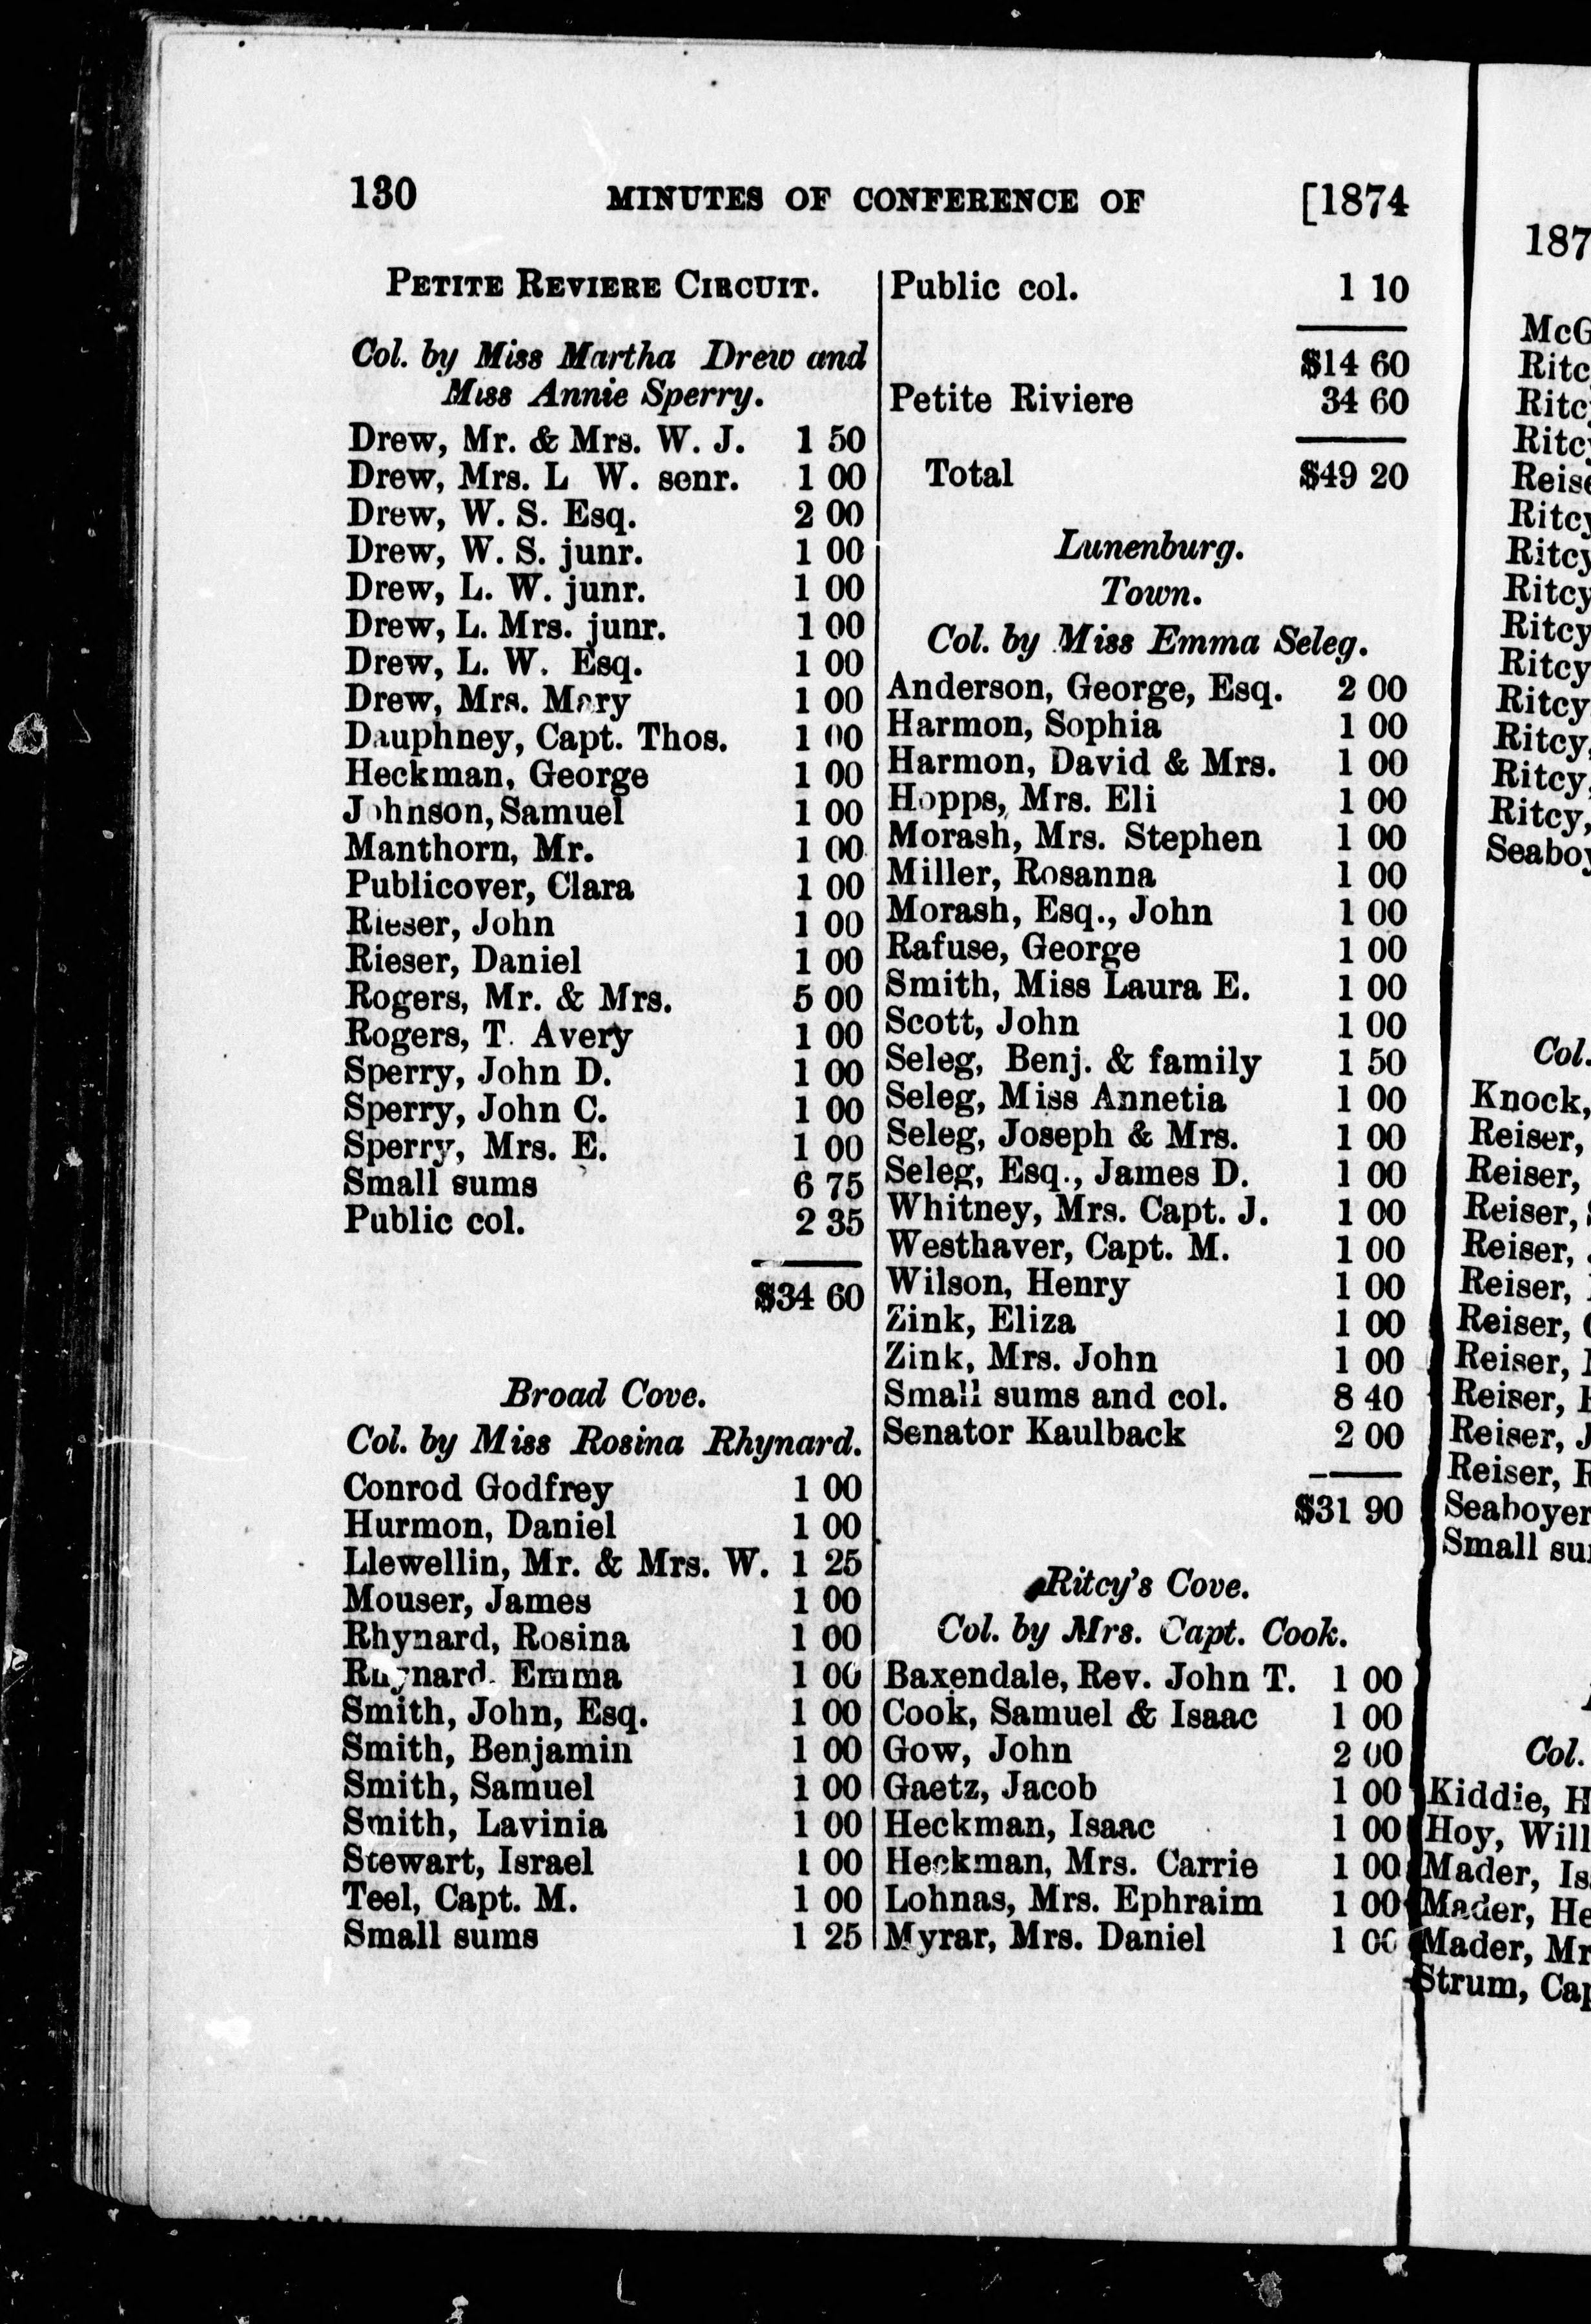 130 MINUTES OF CONFERENCE OF [1874
PETITE REVIERE CIRCUIT.
Col. by Miss Martha Drew and
Miss Annie Sperry.
Drew, Mr. & Mrs. W. J. 1 50
Drew, Mrs. L W. senr. 1 00
Drew, W. S. Esq. 2 00
Drew, W. S. junr. 1 00
Drew, L. W. junr. 1 00
Drew, L. Mrs. junr. 1 00
Drew, L. W. Esq. 1 00
Drew, Mrs. Mary 1 00
Dauphney, Capt. Thos. 1 00
Heckman, George 1 00
Johnson, Samuel 1 00
Manthorn, Mr. 1 00
Publicover, Clara 1 00
Rieser, John 1 00
Rieser, Daniel 1 00
Rogers, Mr. & Mrs. 5 00
Rogers, T. Avery 1 00
Sperry, John D. 1 00
Sperry, John C. 1 00
Sperry, Mrs. E. 1 00
Small sums 6 75
Public col. 2 35
$34 60
Broad Cove.
Col. by Miss Rosina Rhynard.
Conrod Godfrey 1 00
Hurmon, Daniel 1 00
Llewellin, Mr. & Mrs. W. 1 25
Mouser, James 1 00
Rhynard, Rosina 1 00
Rhynard. Emma 1 00
Smith, John, Esq. 1 00
Smith, Benjamin 1 00
Smith, Samuel 1 00
Smith, Lavinia 1 00
Stewart, Israel 1 00
Teel, Capt. M. 1 00
Small sums 1 25
Public col. 1 10
$14 60
Petite Riviere 34 60
Total $49 20
Lunenburg.
Town.
Col. by Miss Emma Seleg.
Anderson, George, Esq. 2 00
Harmon, Sophia 1 00
Harmon, David & Mrs. 1 00
Hopps, Mrs. Eli 1 00
Morash, Mrs. Stephen 1 00
Miller, Rosanna 1 00
Morash, Esq., John 1 00
Rafuse, George 1 00
Smith, Miss Laura E. 1 00
Scott, John 1 00
Seleg, Benj. & family 1 50
Seleg, Miss Annetia 1 00
Seleg, Joseph & Mrs. 1 00
Seleg, Esq., James D. 1 00
Whitney, Mrs. Capt. J. 1 00
Westhaver, Capt. M. 1 00
Wilson, Henry 1 00
Zink, Eliza 1 00
Zink, Mrs. John 1 00
Small sums and col. 8 40
Senator Kaulback 2 00
$31 90
Ritcy's Cove.
Col. by Mrs. Capt. Cook.
Baxendale, Rev. John T. 1 00
Cook, Samuel & Isaac 1 00
Gow, John 2 00
Gaetz, Jacob 1 00
Heckman, Isaac 1 00
Heckman, Mrs. Carrie 1 00
Lohnas, Mrs. Ephraim 1 00
Myrar, Mrs. Daniel 1 00
187
McG
Ritc
Ritc
Ritcy
Reise
Ritcy
Ritcy
Ritcy
Ritcy
Ritcy
Ritcy
Ritcy,
Ritcy,
Ritcy,
Seaboy
Col.
Knock,
Reiser,
Reiser,
Reiser,
Reiser,
Reiser,
Reiser,
Reiser,
Reiser,
Reiser, J
Reiser, R
Seaboyer
Small su
Col.
Kiddie, H
Hoy, Will
Mader, Is
Mader, He
Mader, Mr
Strum, Cap